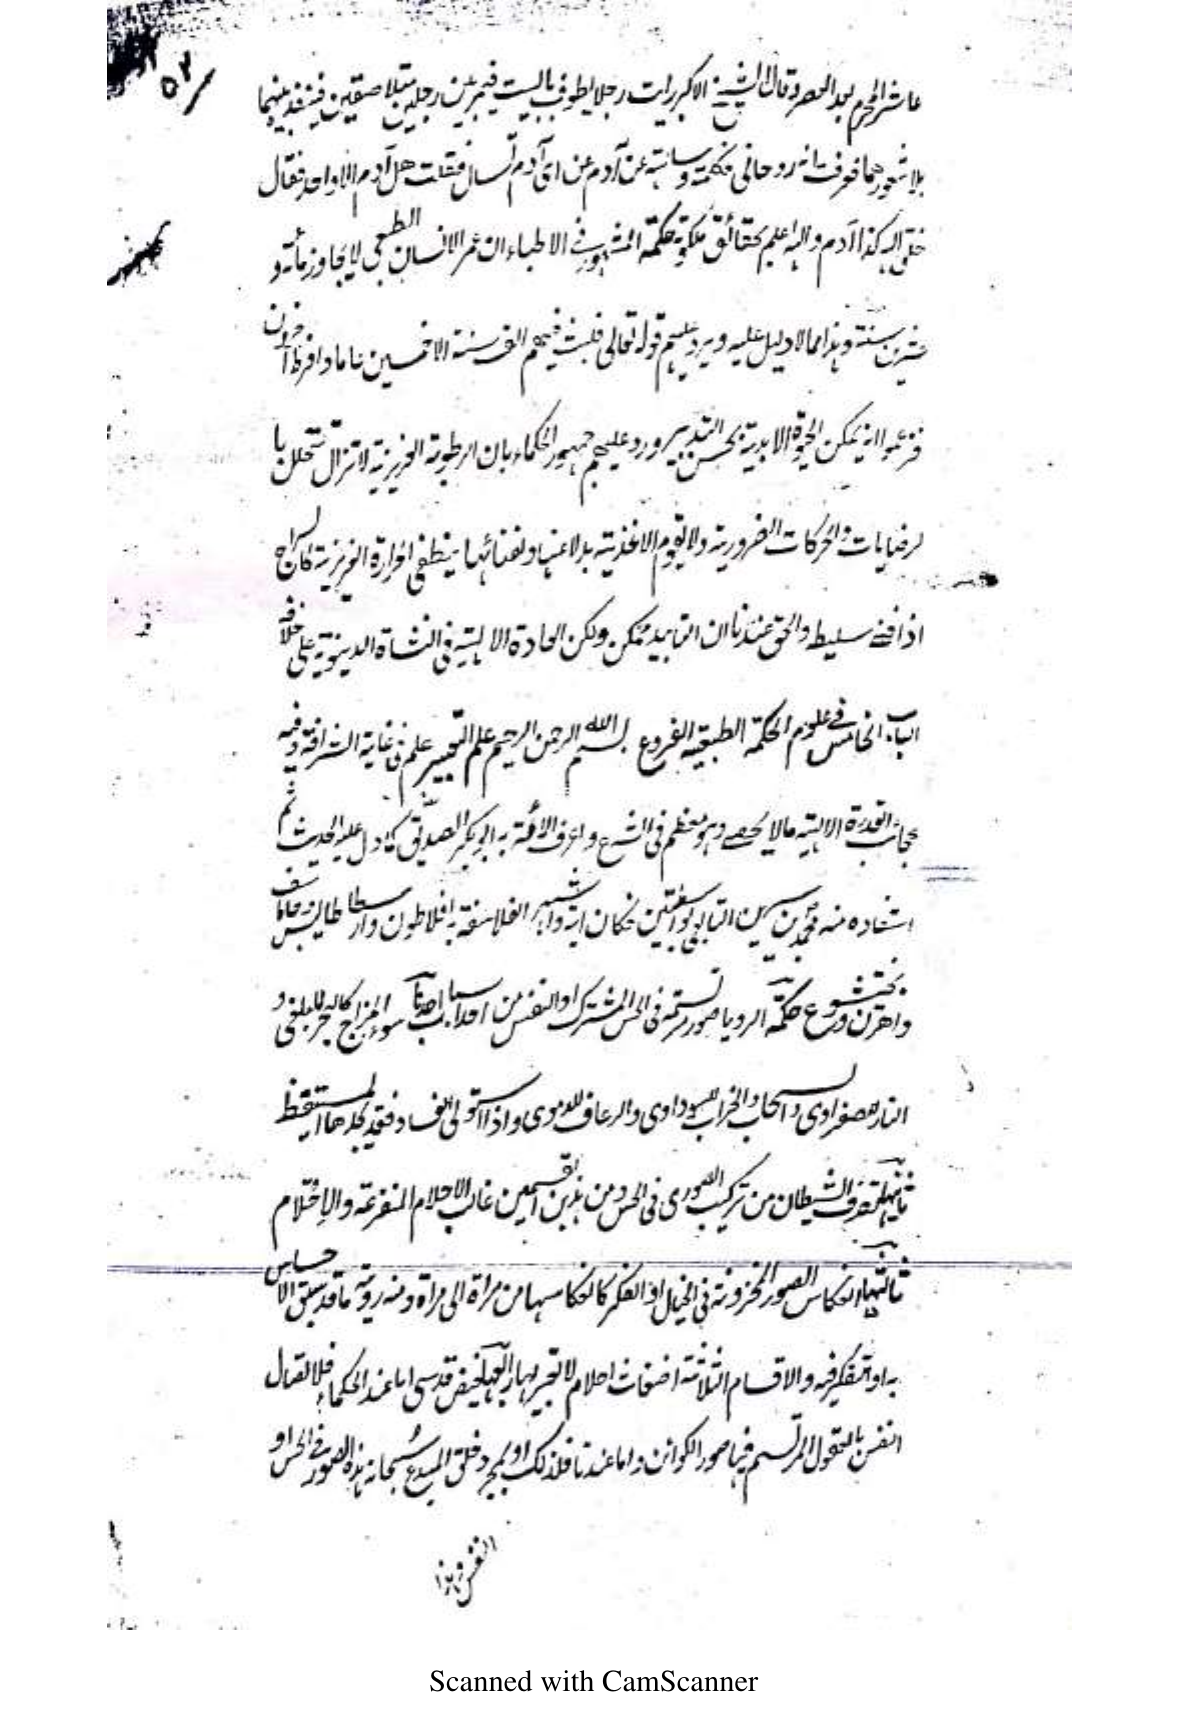 ٥٣
عاشر المحرم بعد العصر وقال الشيخ الاكبر رايت رجلا يطوف بالبيت فيمر بين رجلين متلاصقين فينفذ بينهما
بلا شعورهما فعرفت انه روحاني فكلمته وسالته عن آدم عن اى آدم تسال فقلت هل آدم الا واحد فقال
خلق الله كذا آدم والله اعلم بحقائق ملكوته حكمة المشهور في الاطباء ان عمر الانسان الطبعي لا يجاوز مائة و
عشرين سنة وهذا مما لا دليل عليه ويرد عليهم قوله تعالى فلبث فيهم الف سنة الا خمسين عاما وافرط آخرون
فزعموا انه يمكن الحيوة الابدية بحسن التدبير ورد عليهم جمهور الحكماء بان الرطوبة الغريزية لا تزال تتحلل با
لرضايات والحركات الضرورية ولا يقوم الاغذية بدلا عنها وبفنائها ينطفى الحرارة الغريزية كالسراج
اذا فنى سليطه والحق عندنا ان التابيد ممكن ولكن العادة الالهية في النشاة الدنيوية على خلافه
الباب الخامس في علوم الحكمة الطبعية الفروع بسم الله الرحمن الرحيم علم التعبير علم في غاية الشرافة وفيه
عجائب القدرة الالهية ما لا يحصى وهو معظم في الشرع واعرف الامة به ابو بكر الصديق كما دل عليه الحديث ثم
استفاده منه محمد بن سيرين التابعي فكان آية واشهر الفلاسفة به افلاطون وارسطاطاليس
بختيشوع حكمة الرويا صور ترتسم في الحس المشترك او النفس من اسباب احدها سوء المزاج كالبحر للبلغمي و
النار للصفراوى والسحاب والخراب للسوداوى والرعاف للدموى واذا استولى الفساد فقد يجدها المستيقظ
ثانيها تصرف الشيطان من تركيب الصورى في الحس ومن هذين القسمين غالب الاحلام المفزعة والاحتلام
ثالثها انعكاس الصور المخزونة في الخيال او الفكر كانعكاسها من مراة الى مراة ومنه روية ما قد سبق الاحساس
به او تفكر فيه والاقسام الثلاثة اضغاث احلام لا تعبير لها رابعها فيض قدسى اما عند الحكماء فلاتصال
النفس بالعقول المرتسم فيها صور الكوائن واما عندنا فلذلك او لمجرد خلق المبدع سبحانه هذه الصور في الحس او
النفس
Scanned with CamScanner